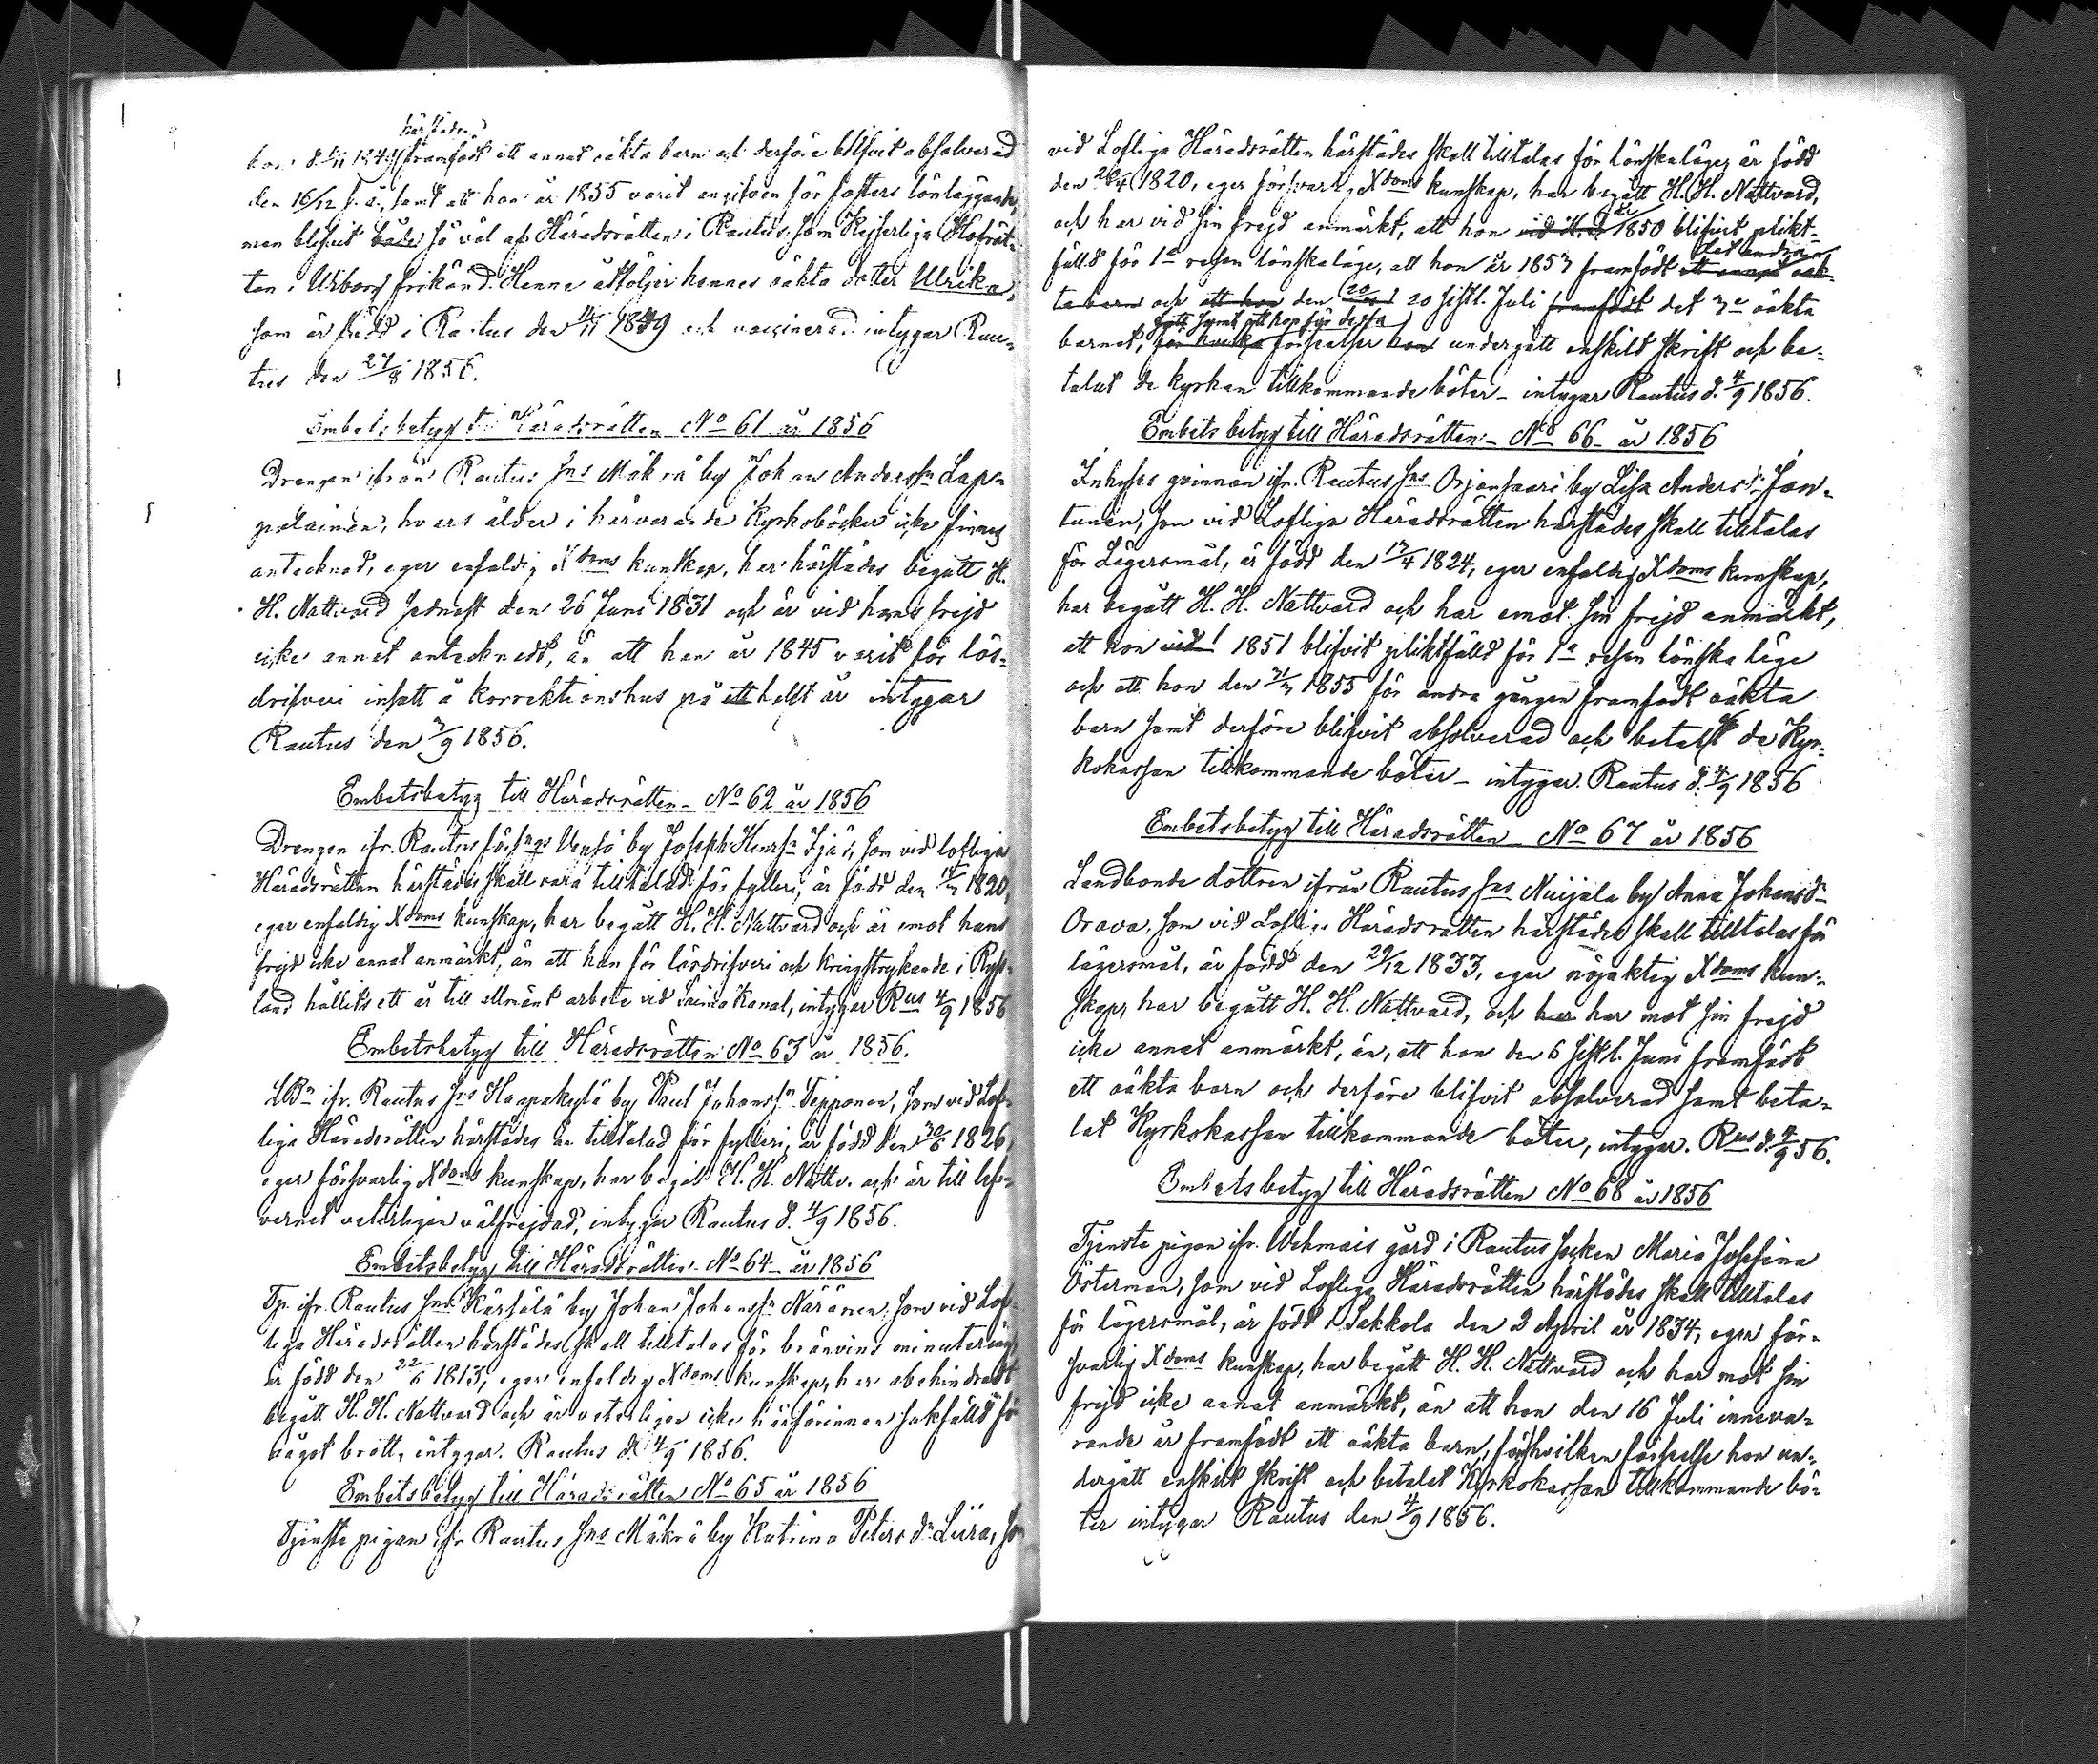 härstädes
hon d. 14/11 1849 framfödt ett annat oäkta barn och derföre blifvit absolverad
den 16/12 s. å., samt att hon år 1855 varit angifven för fosters lönläggande,
men blifvit både så väl af Häradsrätten i Rautus, som Kejserliga Hofrät-
ten i Wiborg frikänd. Henne åtföljer hennes oäkta dotter Ulrika,
som är född i Rautus den 14/11 1849 och vaccinerad intygar Rau-
tus den 27/8 1856.
Embetsbetyg till Häradsrätten No 61 år 1856
Drengen ifrån Rautus Sns Mäkrä by Johan Anderssn Lapa-
palainen, hvars ålder i härvarande Kyrkoböcker icke finnes
antecknad, eger enfaldig Xdoms kunskap, har härstädes begått H.
H. Nattvard sednast den 26 Juni 1831 och är vid hans frejd
icke annat antecknadt, än att han år 1845 varit för lös-
drifveri insatt å korrektionshus på ett helt år intygar
Rautus den 3/9 1856.
Embetsbetyg till Häradsrätten No 62 år 1856
Drengen ifr. Rautus förs:ngs by Joseph Henrsn som vid lofliga
Häradsrätten härstädes skall vara tilltalad för fylleri, är född den 14/3 1820,
eger enfaldig Xdoms kunskap, har begått H. H. Nattvard och är emot hans
frejd icke annat anmärkt, än att han för lösdrifveri och kringstrykande i Ryss-
land hållits ett år till allmänt arbete vid Saima Kanal, intygar Rus 4/9 1856
Embetsbetyg till Häradsrätten No 63 år 1856.
LBn ifr. Rautus Sns Haapakylä by Paul Johanssn Tepponen, som vid Lof-
liga Häradsrätten härstädes är tilltalad för fylleri, är född den 30/6 1826,
eger försvarlig Xdoms kunskap, har begått H. H. Nattv. och är till lef-
vernet veterligen välfrejdad, intygar Rautus d. 4/9 1856.
Embetsbetyg till Häradsrätten No 64 år 1856
Tp. ifr. Rautus Sns Kärsälä by Johan Johanssn Näränen, som vid Lof-
liga Häradsrätten härstädes skall tilltalas för bränvins minutering
är född den 22/6 1813, eger enfaldig Xdoms kunskap, har obehindradt
begått H. H. Nattvard och är veterligen icke härförinnan sakfälld för
något brott, intygar. Rautus d. 4/9 1856.
Embetsbetyg till Häradsrätten No 65 år 1856
Tjenste pigan ifr Rautus Sns Mäkrä by Katrina Peters dr Liira, som
vid Lofliga Häradsrätten härstädes skall tilltalas för lönskaläge, är född
den 26/4 1820, eger försvarlig Xdoms kunskap, har begått H. H. Nattvard,
och har vid sin frejd anmärkt, att hon vid H. år 1850 blifvit plikt-
fälld för 1a resan lönskaläge, att hon år 1853 framfödt ett det andra oäk-
ta barn och att hon den 20 sistl. Juli framfödt det 3e oäkta
födt samt att hon för dessa
barnet, för hvilka förseelser hon undergått enskild skrift och be-
talat de kyrkan tillkommande böter – intygar Rautus d. 4/9 1856.
Embetsbetyg till Häradsrätten – No 66 – år 1856
Inhyses qvinnan ifr. Rautus Sns Orjansaari by Lisa Andersdr Jan-
tunen, som vid Lofliga Häradsrätten härstädes skall tilltalas
för Lägersmål, är född den 13/4 1824, eger enfaldig Xdoms kunskap,
har begått H. H. Nattvard och har emot sin frejd anmärkt,
att hon vid 1851 blifvit pliktfälld för 1a resan lönska läge
och att hon den 31/3 1855 för andra gången framfödt oäkta
barn samt derföre blifvit absolverad och betalt de Kyr-
kokassan tillkommande böter – intygar. Rautus d. 4/9 1856
Embetsbetyg till Häradsrätten No 67 år 1856
Landbonde dottren ifrån Rautus Sns Nuijala by Anna Johansdr
Orava, som vid Lofliga Häradsrätten härstädes skall tilltalas för
lägersmål, är född den 29/12 1833, eger nöjaktig Xdoms kun-
skap, har begått H. H. Nattvard, och har har mot sin frejd
icke annat anmärkt, än, att hon den 6 sistl. Juni framfödt
ett oäkta barn och derföre blifvit absolverad samt beta-
lat Kyrkokassan tillkommande böter, intygar. Rus d. 4/9 56.
Embetsbetyg till Häradsrätten No 68 år 1856
Tjenste pigan ifr. Wehmais gård i Rautus socken Maria Josefina
Österman, som vid Lofliga Häradsrätten härstädes skall tilltalas
för lägersmål, är född i Sakkola den 2 April år 1834, eger för-
svarlig Xdoms kunskap, har begått H. H. Nattvard och har mot sin
frejd icke annat anmärkt, än att hon den 16 Juli inneva-
rande år framfödt ett oäkta barn, för hvilken förseelse hon un-
dergått enskilt skrift och betalat Kyrkokassan tillkommande bö-
ter intygar Rautus den 4/9 1856.